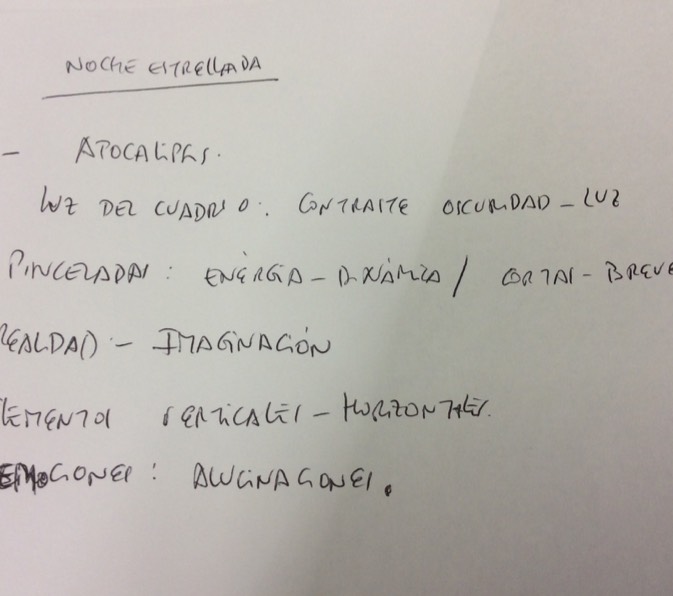 NOCHE ESTRELLADA
- APOCALIPSIS.
LUZ DEL CUADRO. CONTRASTE OSCURIDAD - LUZ
PINCELADAS: ENERGÍA - DINÁMICA / CORTAS - BREVE
REALIDAD - IMAGINACIÓN
LEMENTOS VERTICALES - HORIZONTALES.
EMOCIONES: ALUCINACIONES.